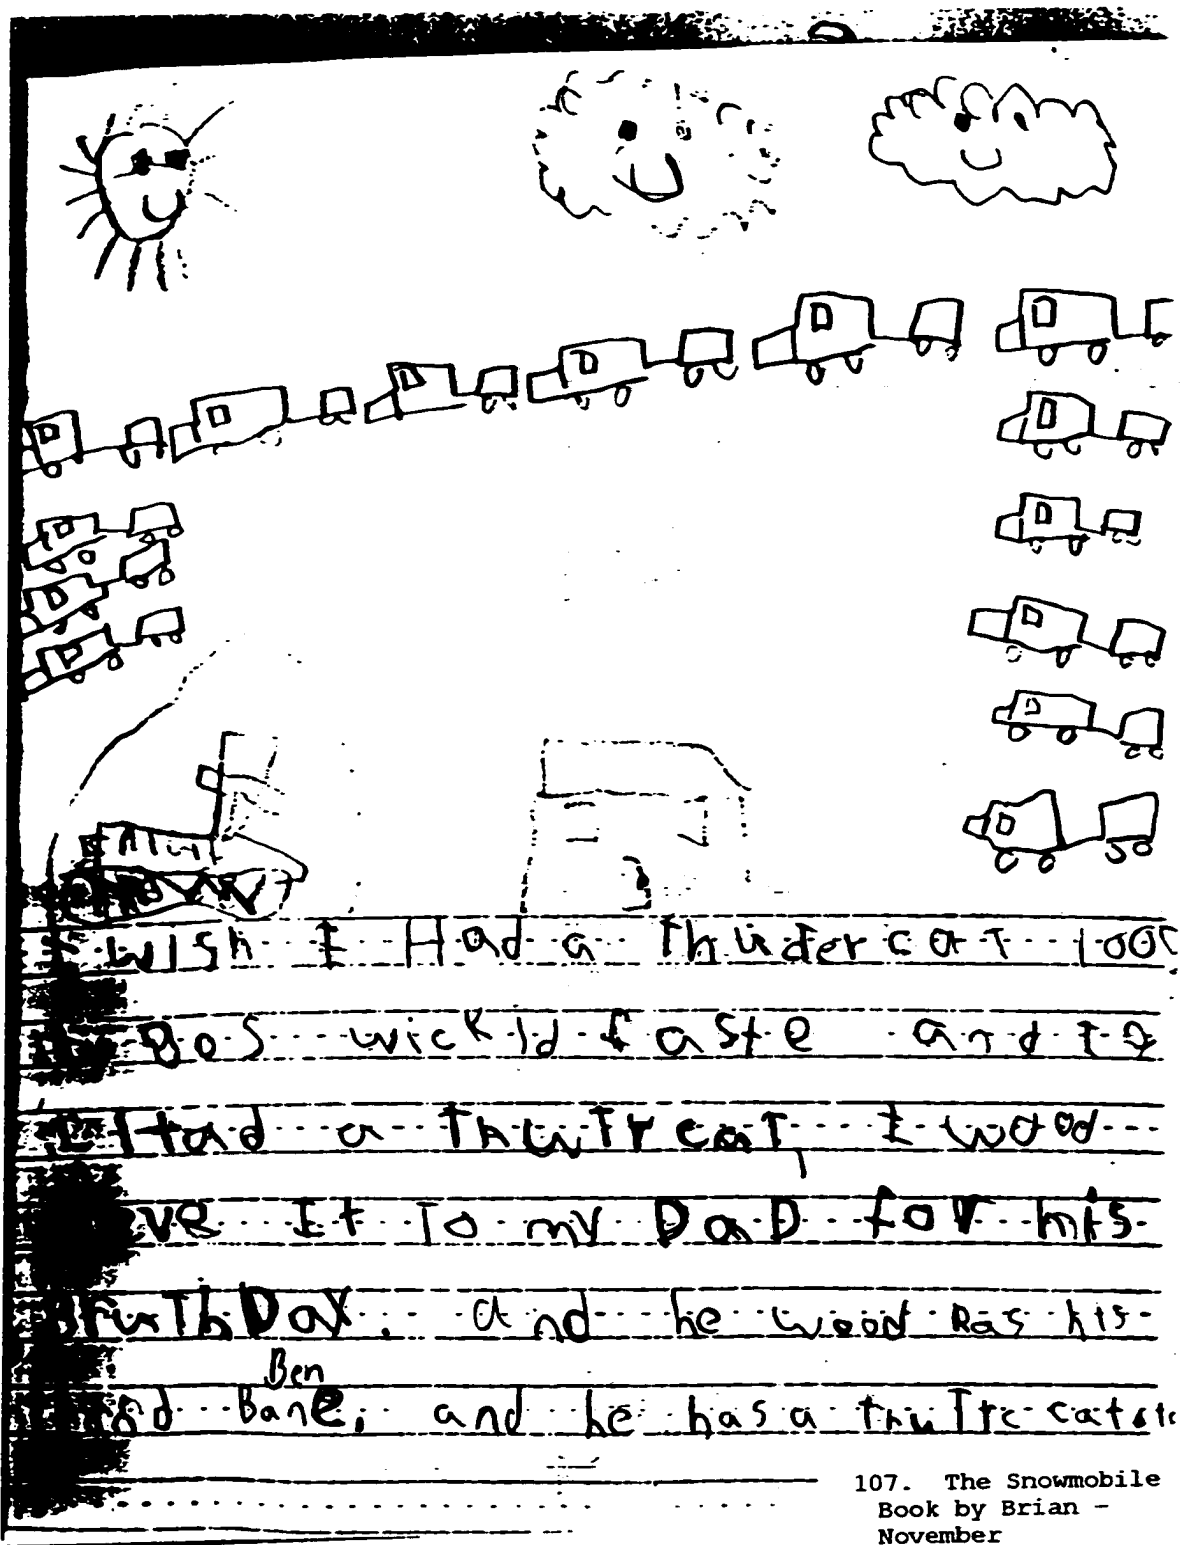 wish I Had a Thuder cat 1000
gos wickid faste and if
I Had a ThuTr cat, I wood
It To my DaD for his
BruThDay. and he wood Ras his
Ben
Bane. and he has a truTrc cat
107. The Snowmobile
Book by Brian –
November